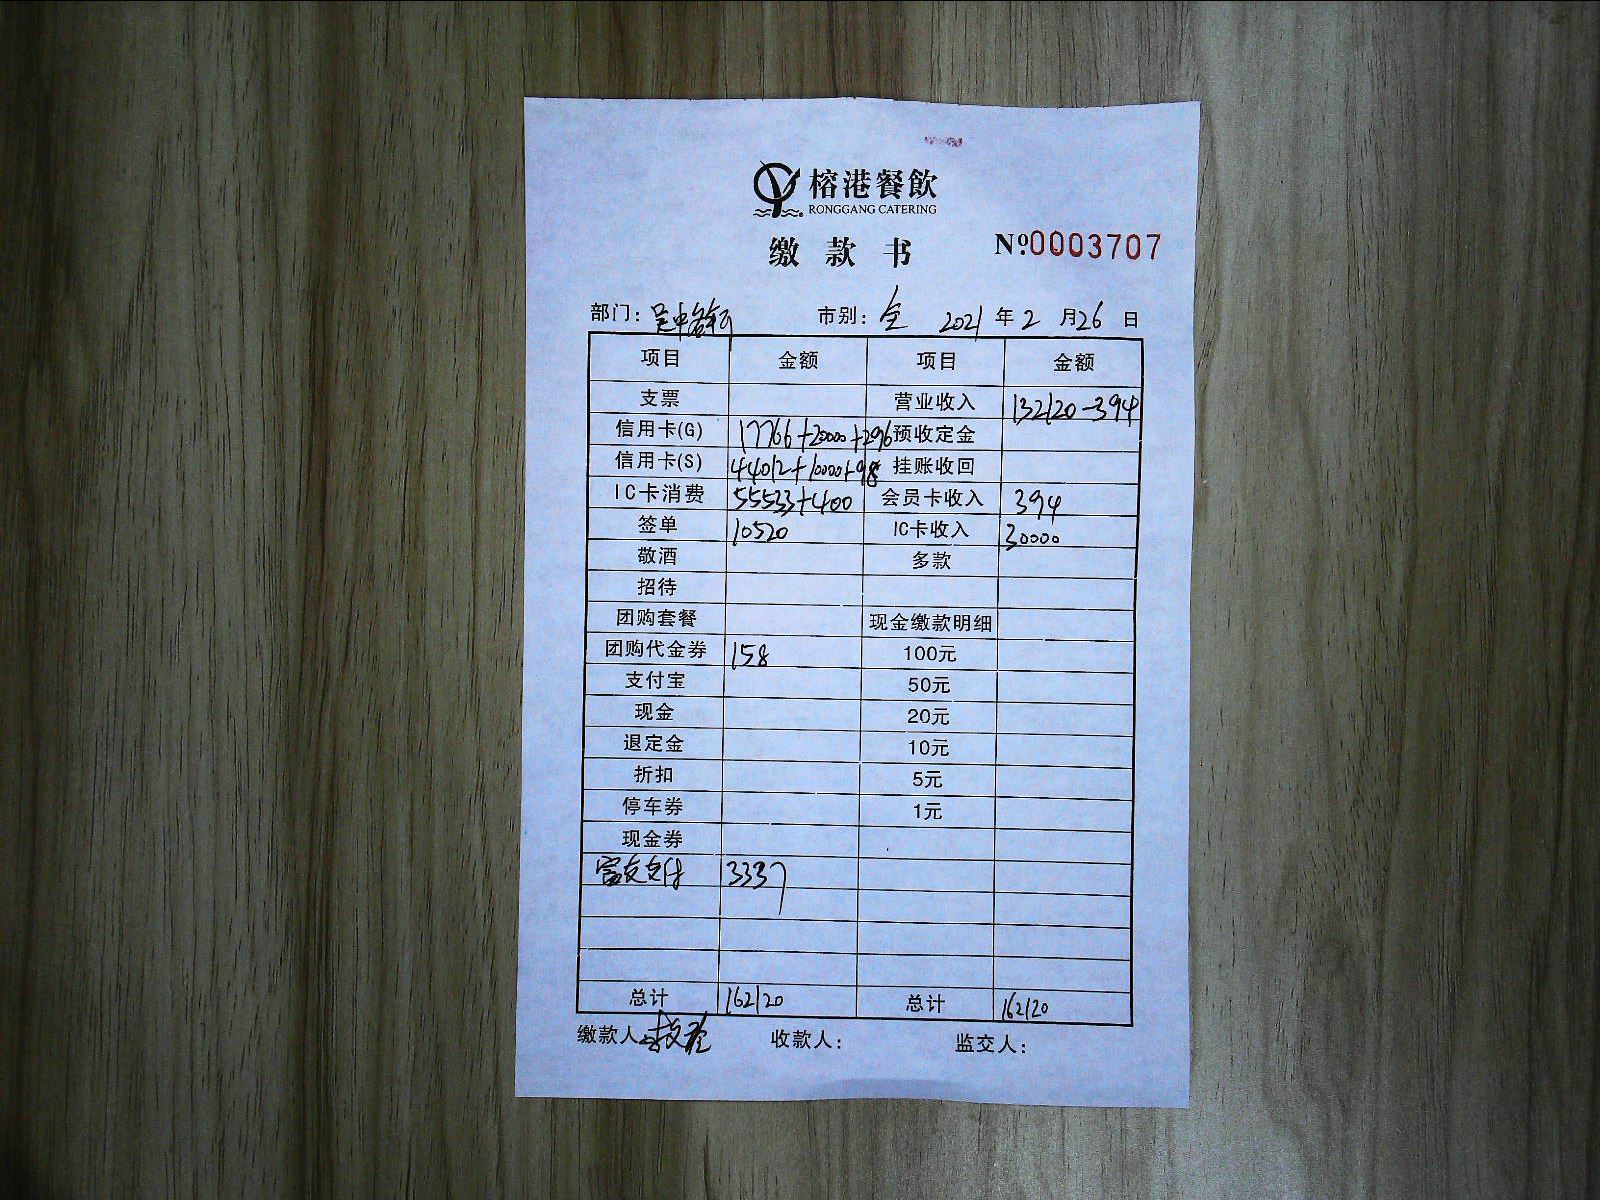 榕港餐飲
RONGGANG CATERING
缴款书 Nº.0003707
部门: 市别: 全 2021年2月26日
项目 金额 项目 金额
支票 营业收入 132120-394
信用卡(G) 17766+20000+296 预收定金
信用卡(S) 44012+10000+98 挂账收回
IC卡消费 55533+400 会员卡收入 394
签单 10520 IC卡收入 30000
敬酒 多款
招待
团购套餐 现金缴款明细
团购代金券 158 100元
支付宝 50元
现金 20元
退定金 10元
折扣 5元
停车券 1元
现金券
富友支付 3337
总计 162120 总计 162120
缴款人 收款人: 监交人: